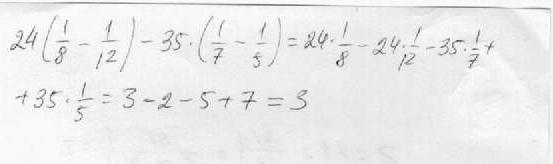 24(1/8 - 1/12) - 35·(1/7 - 1/5) = 24·1/8 - 24·1/12 - 35·1/7 +
+ 35·1/5 = 3 - 2 - 5 + 7 = 3